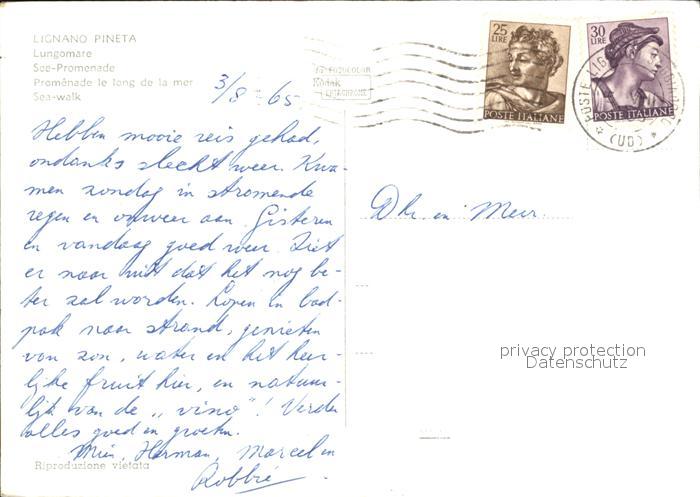 LIGNANO PINETA
Lungomare
See-Promenade
Promênade le long de la mer
Sea-walk
3/8-65
Hebben mooie reis gehad,
ondanks slecht weer. Kwa-
men zondag in stromende
regen en onweer aan. Gisteren
en vandaag goed weer. Ziet
er naar uit dat het nog be-
ter zal worden. Lopen in bad-
pak naar strand, genieten
van zon, water en het heer-
lijke fruit hier, en natuur-
lijk van de „vino"! Verder
alles goed en groeten.
Mien, Herman, Marcel en
Robbie.
Riproduzione vietata
FOTOCOLOR
Kodak
EKTACHROME
25
LIRE
POSTE ITALIANE
30
LIRE
POSTE ITALIANE
POSTE LIG
(UD)
Dhr. en Mevr.
privacy protection
Datenschutz